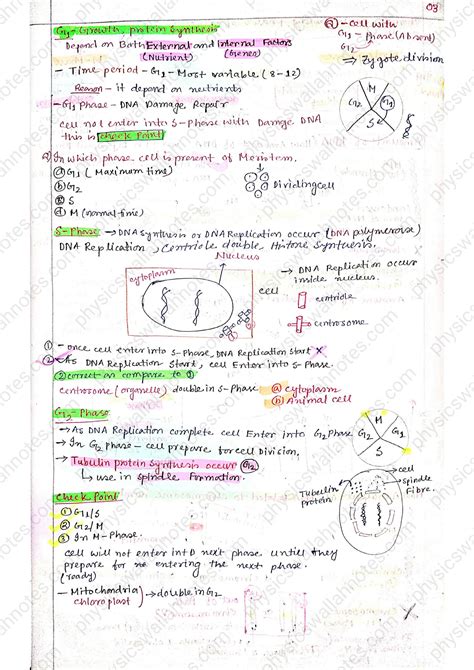 03
G1- Growth, protein Synthesis
Depend on Both External and Internal Factors
(Nutrient) (Genes)
Q - Cell with
G1 - Phase (Absent)
G12
⇒ Zygote division
- Time period - G1 - Most variable (8-12)
Reason - it depend on nutrients
- G1 Phase - DNA Damage Repair
Cell not enter into S-Phase with Damge DNA
this is check Point
M
G2
G1
S
Q In which phase cell is present of Meristem.
a G1 (Maximum time)
b G2
c S
d M (normal time)
Dividing cell
S-Phase → DNA Synthesis or DNA Replication occur (DNA polymerase)
DNA Replication, Centriole double, Histone Synthesis.
Nucleus
cytoplasm
cell
→ DNA Replication occur
inside nucleus.
centriole
centrosome
① - once cell enter into S-Phase, DNA Replication Start ×
② - As DNA Replication Start, cell Enter into S-Phase.
② correct as compare to ①
Centrosome (organelle) double in S-Phase a Cytoplasm
b Animal cell
G2-Phase
→ As DNA Replication complete cell Enter into G2 Phase
→ In G2 phase - cell prepare for cell Division.
→ Tubulin protein Synthesis occur G2
↳ use in Spindle Formation.
M
G2
G1
S
cell
Spindle
Fibre.
Tubulin
protein
Check Point
① G1/S
② G2/M
③ In M-Phase.
cell will not enter intD next phase untill they
prepare for no entering the next phase.
(ready)
- Mitochondria
chloroplast
→ double in G2